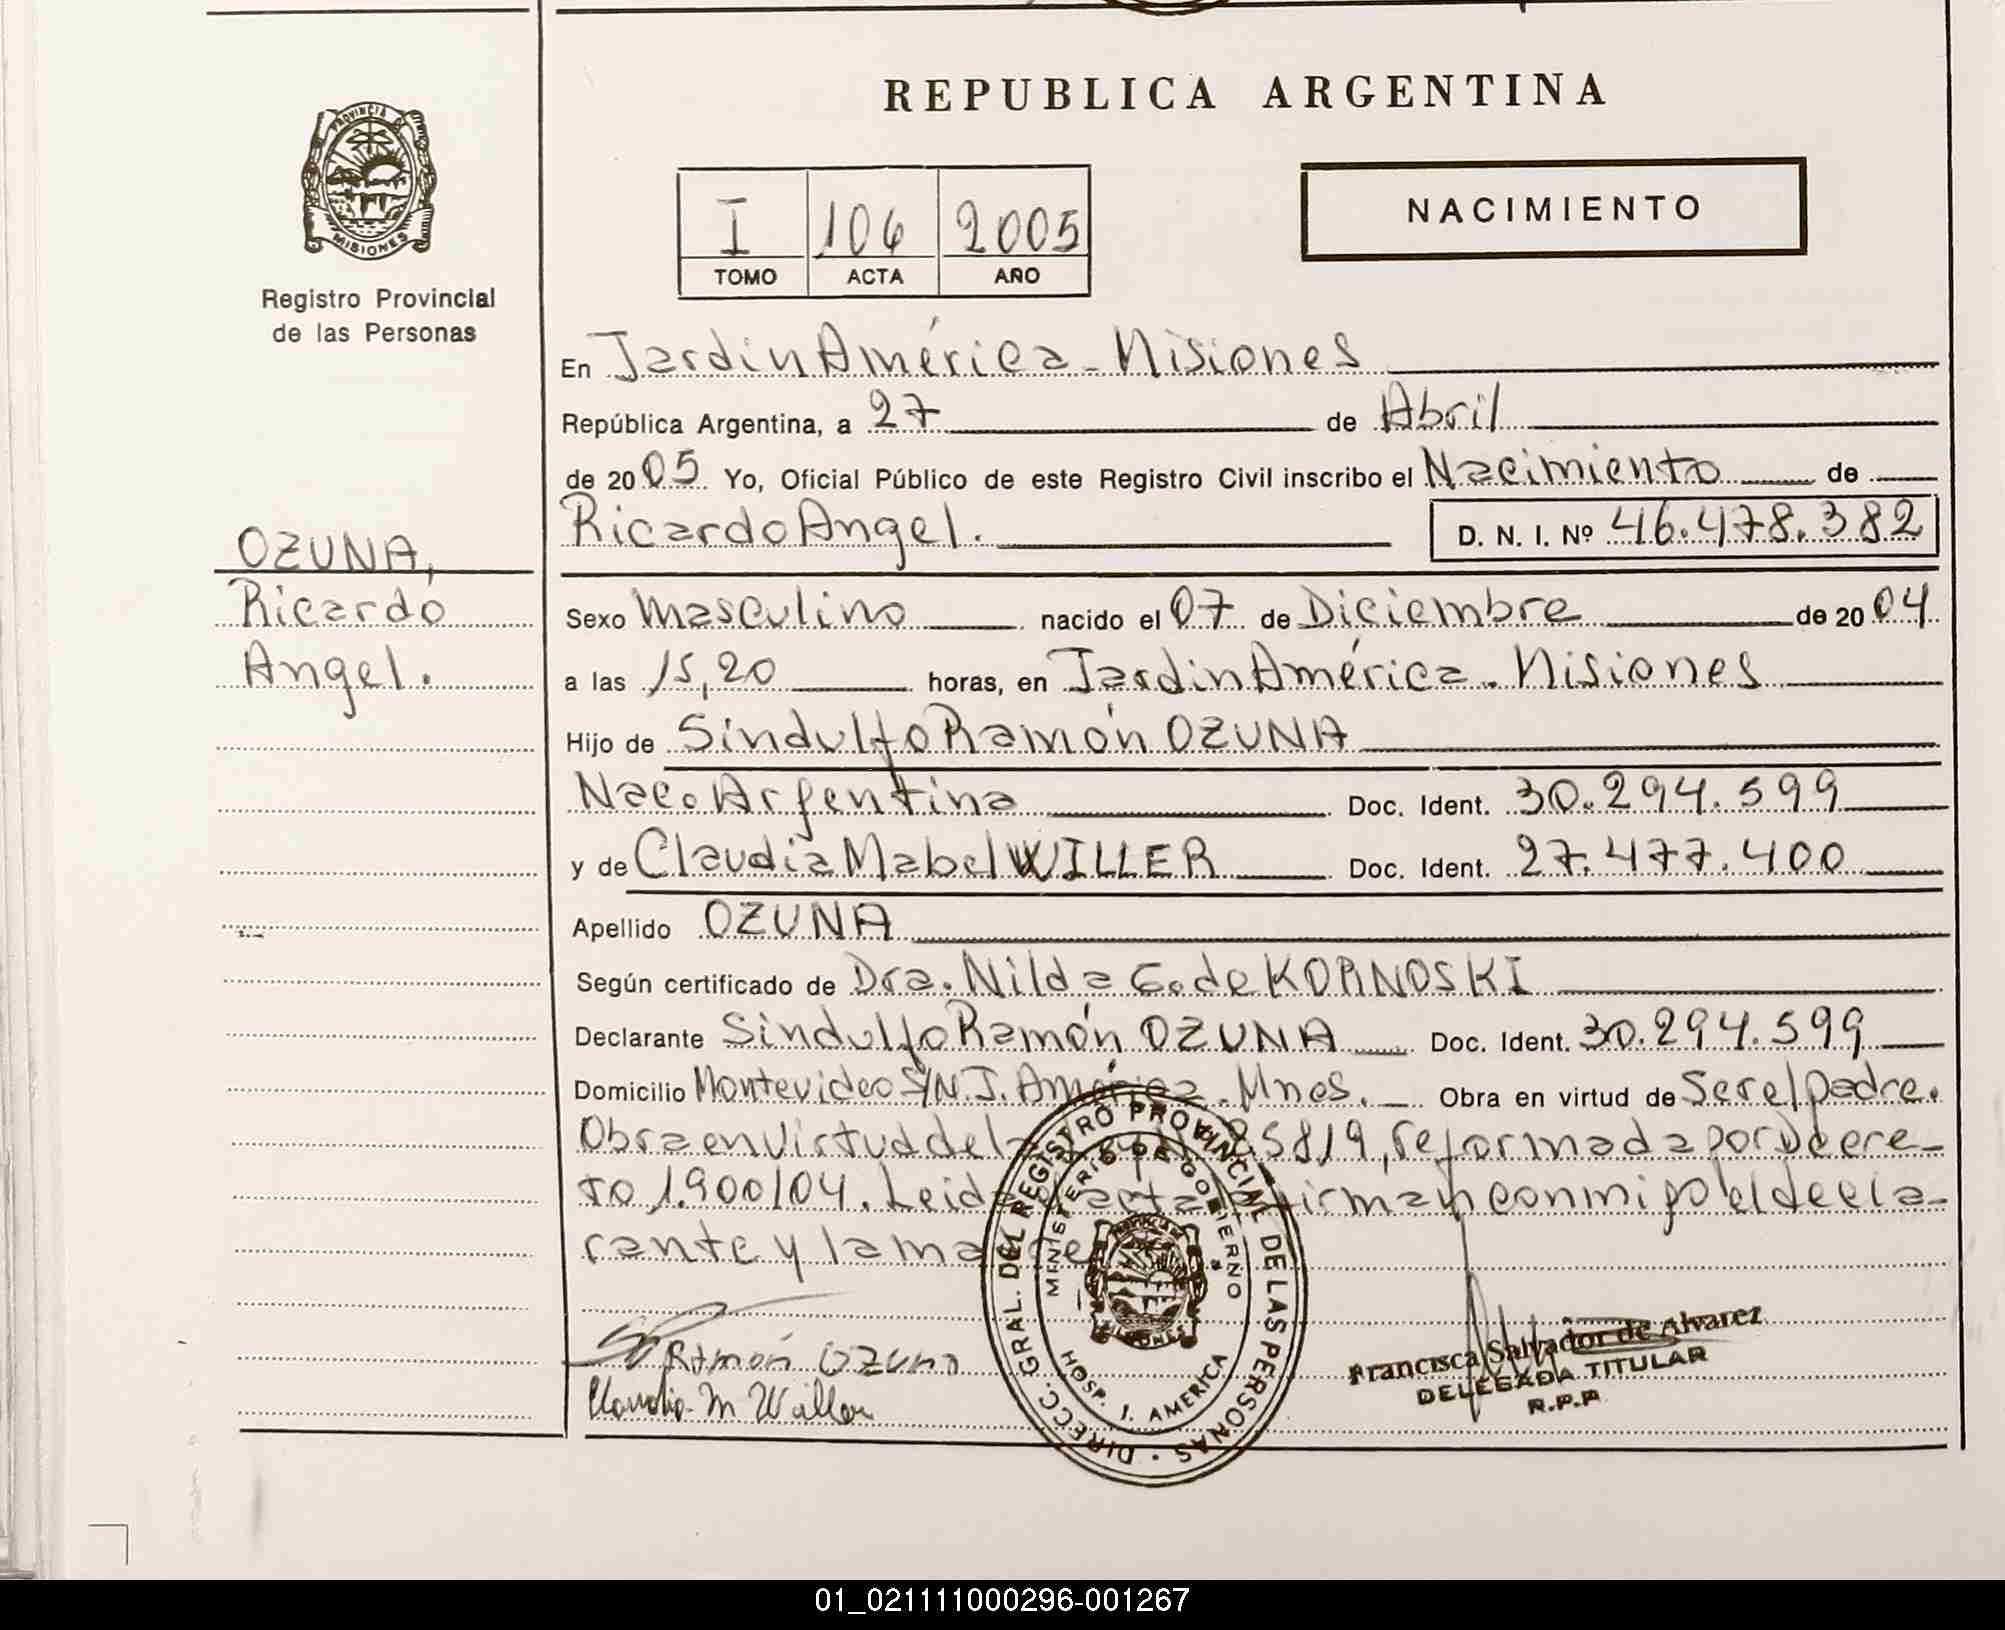 PROVINCIA DE
MISIONES
Registro Provincial
de las Personas
REPUBLICA ARGENTINA
I 106 2005
TOMO ACTA AÑO
NACIMIENTO
OZUNA,
Ricardo
Angel.
En Jardin América - Misiones
República Argentina, a 27 de Abril
de 2005 Yo, Oficial Público de este Registro Civil inscribo el Nacimiento de
Ricardo Angel. D. N. I. Nº 46.478.382
Sexo Masculino nacido el 07 de Diciembre de 2004
a las 15,20 horas, en Jardin América - Misiones
Hijo de Sindulfo Ramón OZUNA
Nac. Argentina Doc. Ident. 30.294.599
y de Claudia Mabel WILLER Doc. Ident. 27.477.400
Apellido OZUNA
Según certificado de Dra. Nilda G. de KORNOSKI
Declarante Sindulfo Ramón OZUNA Doc. Ident. 30.294.599
Domicilio Montevideo S/N. J. América. Mnes. Obra en virtud de Ser el padre.
Obra en virtud de la 25819, reformada por Decre-
to 1.900/04. Leida acta firman conmigo el decla-
rante y la madre
Ramón Ozuna
Claudia M Willer
DIRECC. GRAL. DEL REGISTRO PROVINCIAL DE LAS PERSONAS
MINISTERIO DE GOBIERNO
MISIONES
HOSP. J. AMERICA
Francisca Salvador de Alvarez
DELEGADA TITULAR
R.P.P.
01_021111000296-001267